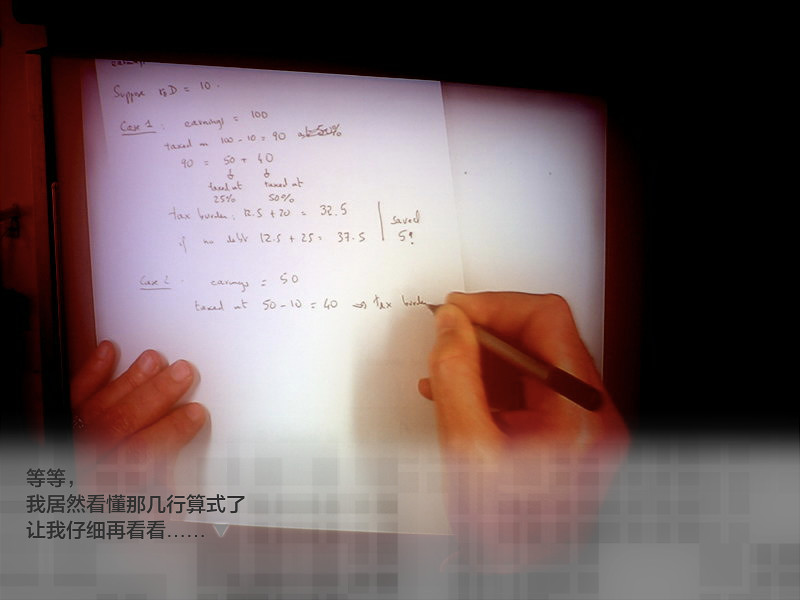 Suppose r₀D = 10.
Case 1: earnings = 100
taxed on 100 - 10 = 90
90 = 50 + 40
taxed at taxed at
25% 50%
tax burden: 12.5 + 20 = 32.5
if no debt 12.5 + 25 = 37.5
saved
5!
Case 2 earnings = 50
taxed at 50 - 10 = 40 => tax burde
等等，
我居然看懂那几行算式了
让我仔细再看看……